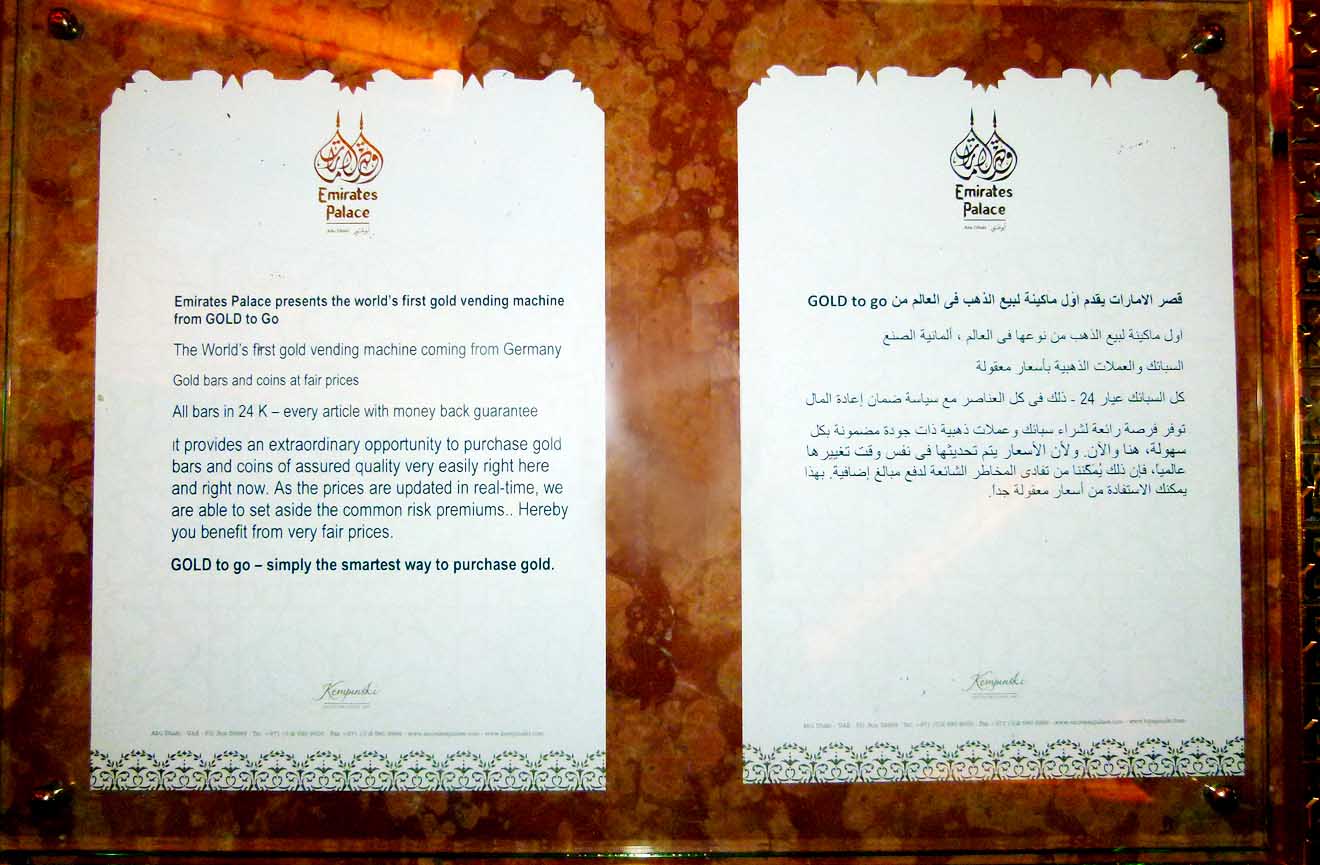 قصر الإمارات
Emirates
Palace
Abu Dhabi أبوظبي
Emirates Palace presents the world's first gold vending machine
from GOLD to Go
The World's first gold vending machine coming from Germany
Gold bars and coins at fair prices
All bars in 24 K – every article with money back guarantee
it provides an extraordinary opportunity to purchase gold
bars and coins of assured quality very easily right here
and right now. As the prices are updated in real-time, we
are able to set aside the common risk premiums.. Hereby
you benefit from very fair prices.
GOLD to go – simply the smartest way to purchase gold.
Kempinski
قصر الإمارات
Emirates
Palace
Abu Dhabi أبوظبي
قصر الامارات يقدم اوّل ماكينة لبيع الذهب فى العالم من GOLD to go
اول ماكينة لبيع الذهب من نوعها فى العالم ، ألمانية الصنع
السبائك والعملات الذهبية بأسعار معقولة
كل السبائك عيار 24 - ذلك فى كل العناصر مع سياسة ضمان إعادة المال
توفر فرصة رائعة لشراء سبائك وعملات ذهبية ذات جودة مضمونة بكل
سهولة، هنا والآن. ولأن الأسعار يتم تحديثها فى نفس وقت تغييرها
عالمياً، فإن ذلك يُمَكّننا من تفادى المخاطر الشائعة لدفع مبالغ إضافية. بهذا
يمكنك الاستفادة من أسعار معقولة جداً.
Kempinski